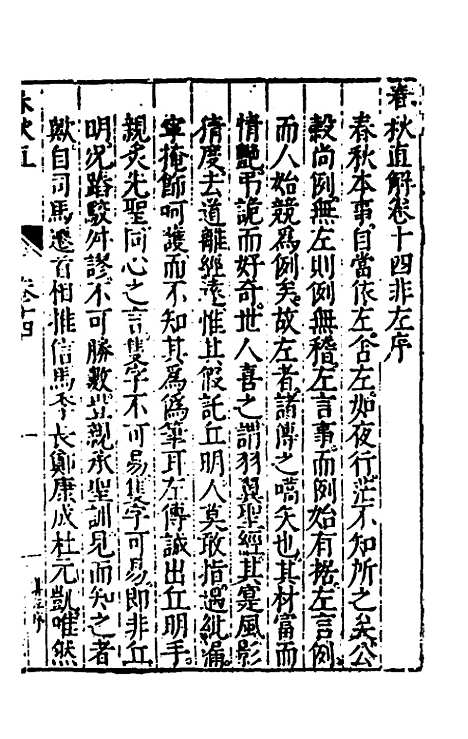 春秋直解卷十四非左序
春秋本事自當依左舍左如夜行茫不知所之矣公
穀尚例無左則例無稽左言事而例始有據左言例
而人始競爲例矣故左者諸傳之嚆矢也其材富而
情艷弔詭而好奇世人喜之謂羽翼聖經其寔風影
猜度去道離經遠惟其假託丘明人莫敢指遇紕漏
寧掩飾呵護而不知其爲僞筆耳左傳誠出丘明手
親炙先聖同心之言隻字不可易隻字可易即非丘
明況踳駁舛謬不可勝數豈親承聖訓見而知之者
歟自司馬遷首相推信馬季長鄭康成杜元凱唯然
春秋直
卷十四
一